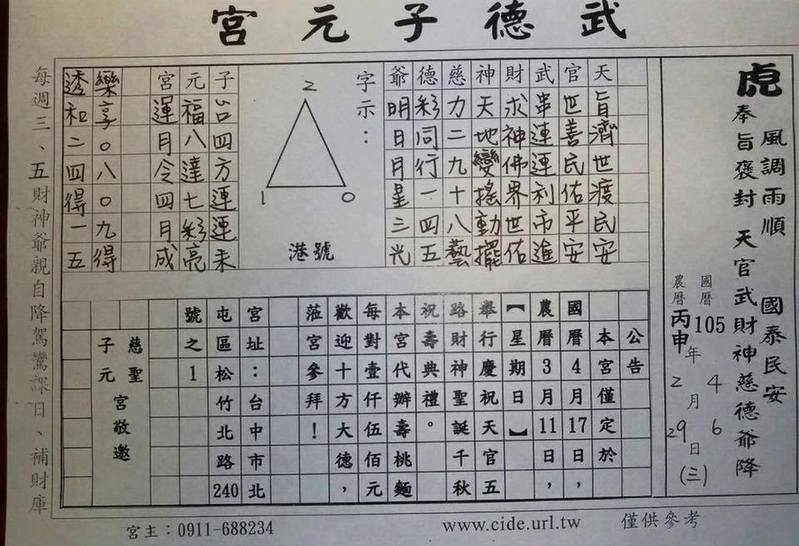 武德子元宮
虎
風調雨順 國泰民安
奉旨褒封 天官武財神慈德爺降
國曆 105 年 4 月 6 日 (三)
農曆 丙申 2 29
天旨濟世渡民安
官世善民佑平安
武串連連利市進
財求神佛界世佑
神天地變搖動擺
慈力二九十八藝
德彩同行一四五
爺明日月星三光
字示:
2
1 0
港號
子台四方連連來
元福八達七彩亮
宮運月令四月成
樂享0八0九得
透和二四得一五
公告
本宮僅定於
國曆4月17日,
農曆3月11日,
【星期日】
舉行慶祝天官五
路財神聖誕千秋
祝壽典禮。
本宮代辦壽桃麵
每對壹仟伍佰元
歡迎十方大德,
蒞宮參拜!
宮址:台中市北
屯區松竹北路240
號之1
慈聖
子元宮敬邀
每週三、五財神爺親自降駕鸞課日、補財庫
宮主:0911-688234
www.cide.url.tw
僅供參考